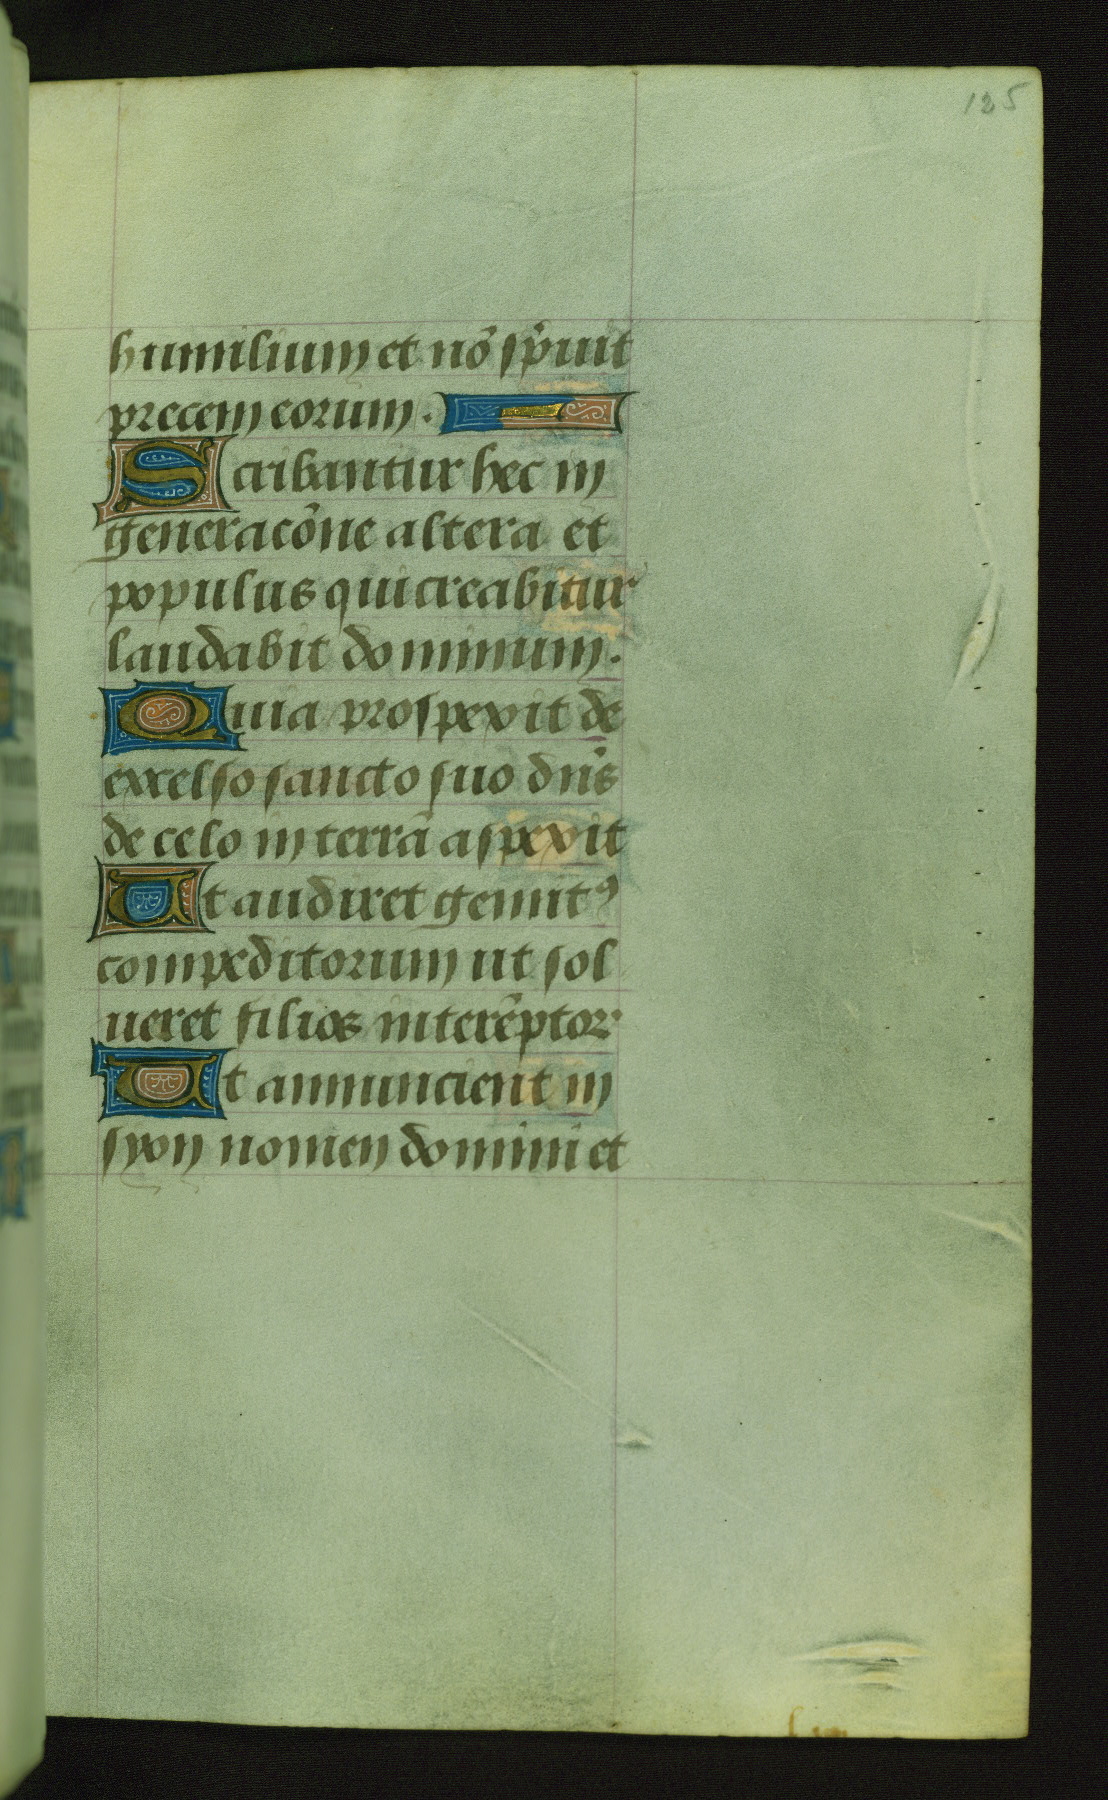 125
humilium et nō sp̄uit
precem eorum.
Scribantur hec in
generacōne altera et
populus qui creabitur
laudabit dominum.
Quia prospexit de
excelso sancto suo dn̄s
de celo in terrā aspexit
Ut audiret gemitꝰ
compeditorum ut sol
ueret filios interēptor
Ut annuncient in
syon nomen domini et